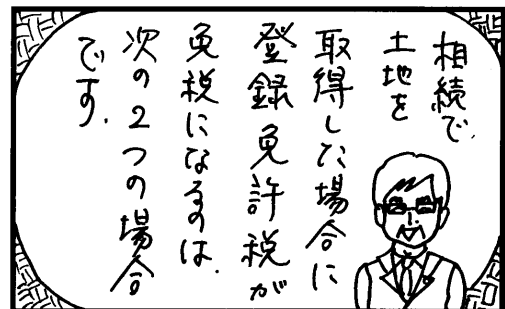 相続で、
土地を
取得した場合に
登録免許税が
免税になるのは、
次の2つの場合
です。